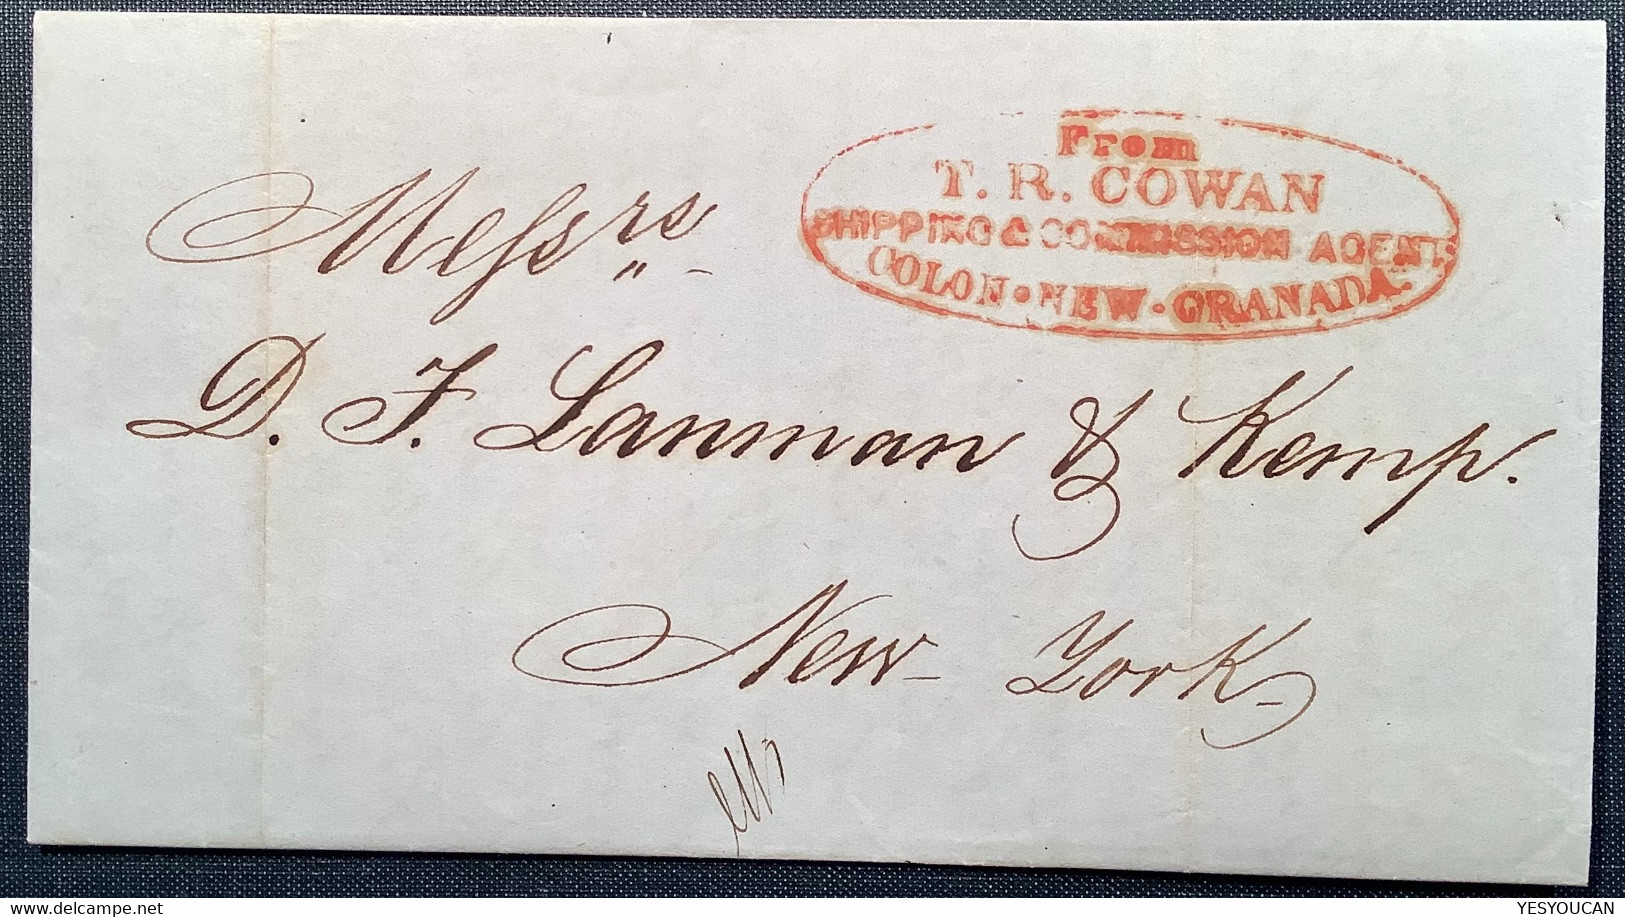 From
T. R. COWAN
SHIPPING & COMMISSION AGENT
COLON · NEW · GRANADA
Messrs
D. F. Lanman & Kemp.
New York
delcampe.net
YESYOUCAN